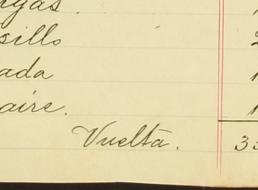 rgas.
sillo
ada
aire.
Vuelta.